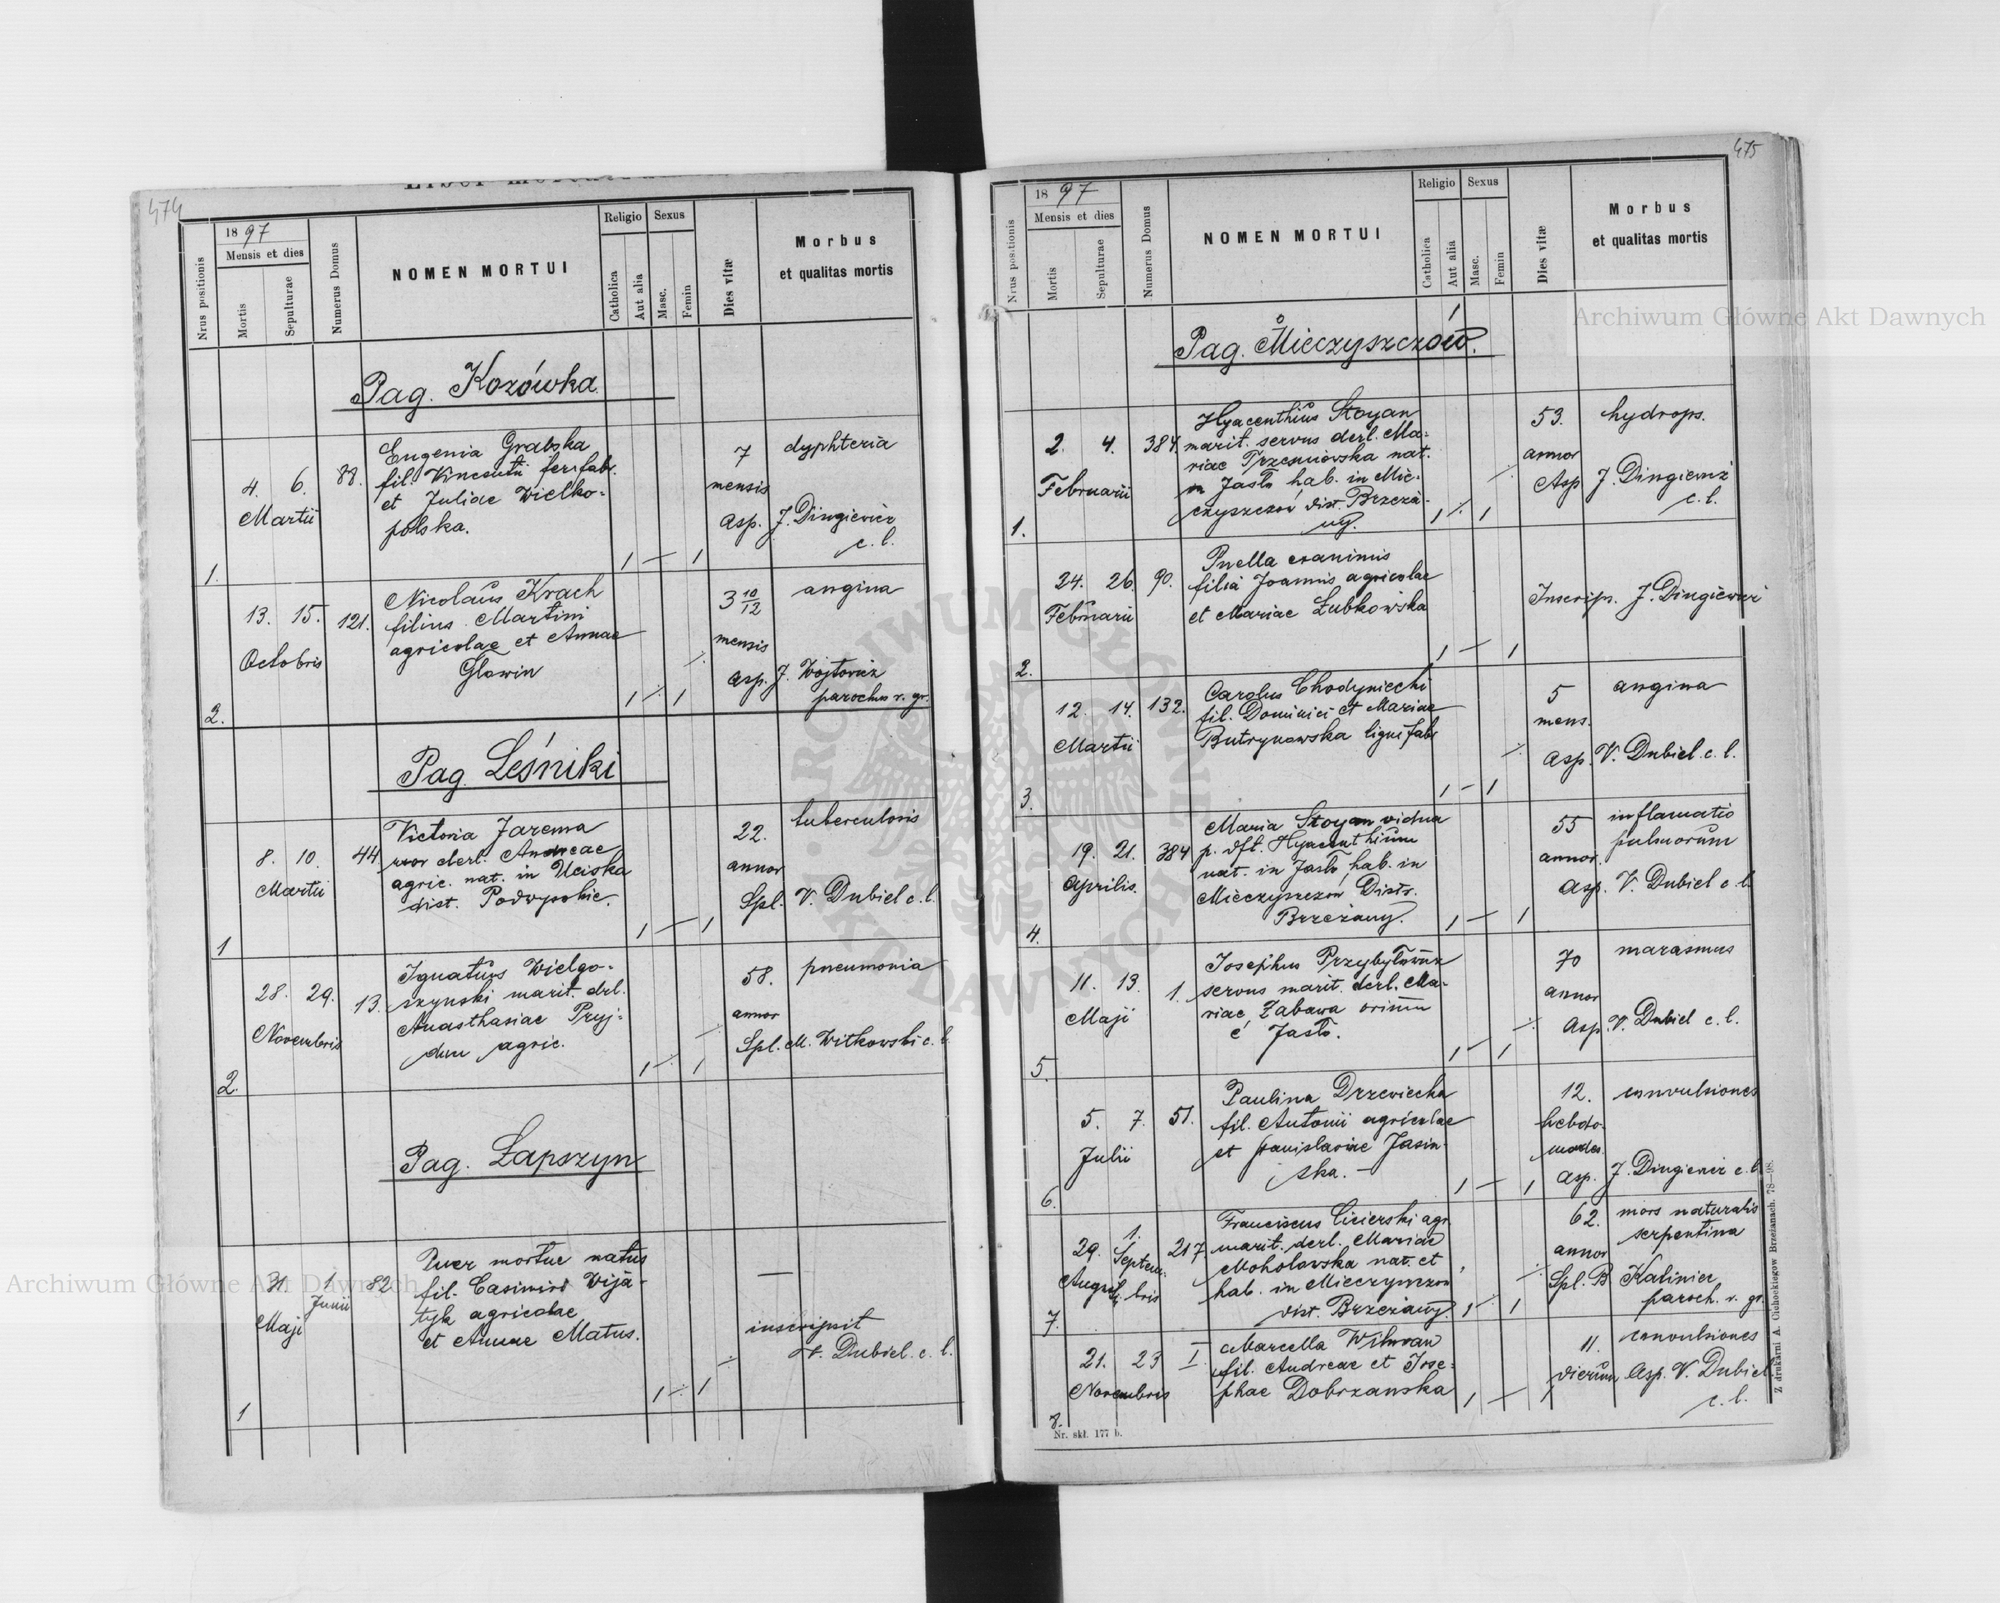 474
18 97
Mensis et dies
Nrus positionis
Mortis
Sepulturae
Numerus Domus
NOMEN MORTUI
Religio
Catholica
Aut alia
Sexus
Masc.
Femin
Dies vitæ
Morbus
et qualitas mortis
Pag. Kozówka
1.
4. 6.
Martii
88.
Eugenia Grabska
fil. Vincentii ferrifabr.
et Juliae Wielko-
polska.
1 — 1
7
mensis
dyphteria
asp. J. Dingiewicz
c. l.
2.
13. 15.
Octobris
121.
Nicolaus Krach
filius Martini
agricolae et Annae
Glowin
1 1
3 10/12
mensis
angina
asp. J. Wojtowicz
parochus r. gr.
Pag. Leśniki
1
8. 10.
Martii
44.
Victoria Jarema
uxor derl. Andreae
agric. nat. in Uciska
dist. Podwysokie.
1 — 1
22.
annor
tuberculosis
Spl. V. Dubiel c. l.
2.
28. 29.
Novembris
13.
Ignatius Wielgo-
szynski marit. drl.
Anasthasiae Pryj-
dun agric.
1 1
58.
annor
pneumonia
Spl. M. Witkowski c. l.
Pag. Łapszyn
1
31. 1
Maji Junii
82
Puer mortue natus
fil. Casimiri Wija-
tyk agricolae
et Annae Matus.
1 1
—
inscripsit
V. Dubiel. c. l.
475
18 97
Mensis et dies
Nrus positionis
Mortis
Sepulturae
Numerus Domus
NOMEN MORTUI
Religio
Catholica
Aut alia
Sexus
Masc.
Femin
Dies vitæ
Morbus
et qualitas mortis
Pag. Mieczyszczów.
1.
2. 4.
Februarii
384.
Hyacenthius Stoyan
marit. servus derl. Ma-
riae Trzesniowska nat.
in Jasło hab. in Mie-
czyszczów dist. Brzeża-
ny.
1 1
53.
annor
hydrops.
Asp J. Dingiewicz
c. l.
2.
24. 26
Februarii
90.
Puella exanimis
filia Joannis agricolae
et Mariae Łubkowska
1 — 1
Inscrips. J. Dingiewicz
3.
12. 14.
Martii
132.
Carolus Chodyniecki
fil. Dominici et Mariae
Butrynowska lignifabr
1 — 1
5
mens.
angina
asp. V. Dubiel. c. l.
4.
19. 21.
Aprilis.
384
Maria Stoyan vidua
p. dft. Hyacenthium
nat. in Jasło, hab. in
Mieczyszczów Distr.
Brzeżany.
1 — 1
55
annor.
inflamatio
pulmorum
asp. V. Dubiel c. l.
5.
11. 13.
Maji
1.
Josephus Przybyłowicz
servus marit. derl. Ma-
riae Zabawa oriun
é Jasło.
1 — 1
70
annor
marasmus
asp. V. Dubiel c. l.
6.
5. 7.
Julii
51.
Paulina Drzewiecka
fil. Antonii agricolae
et Stanislaviae Jasin-
ska. —
1 — 1
12.
hebdo-
mades.
convulsiones
asp. J. Dingiewicz c. l.
7.
29. 1.
Augusti Septem-
bris
217.
Franciscus Cicierski agr.
marit. derl. Mariae
Moholowska nat. et
hab. in Mieczyszczów
dist. Brzeżany.
1 1
62.
annor
mors naturalis
serpentina
Spl. B Kalinicz
paroch. r. gr.
8.
21. 23
Novembris
I
Marcella Wihwan
fil. Andreae et Jose-
phae Dobrzanska
1 — 1
11.
dierum
convulsiones
Asp. V. Dubiel
c. l.
Nr. skł. 177 b.
Z drukarni A. Cichockiegow Brzeżanach. 78—98.
Archiwum Główne Akt Dawnych
Archiwum Główne Akt Dawnych
ARCHIWUM GŁÓWNE AKT DAWNYCH